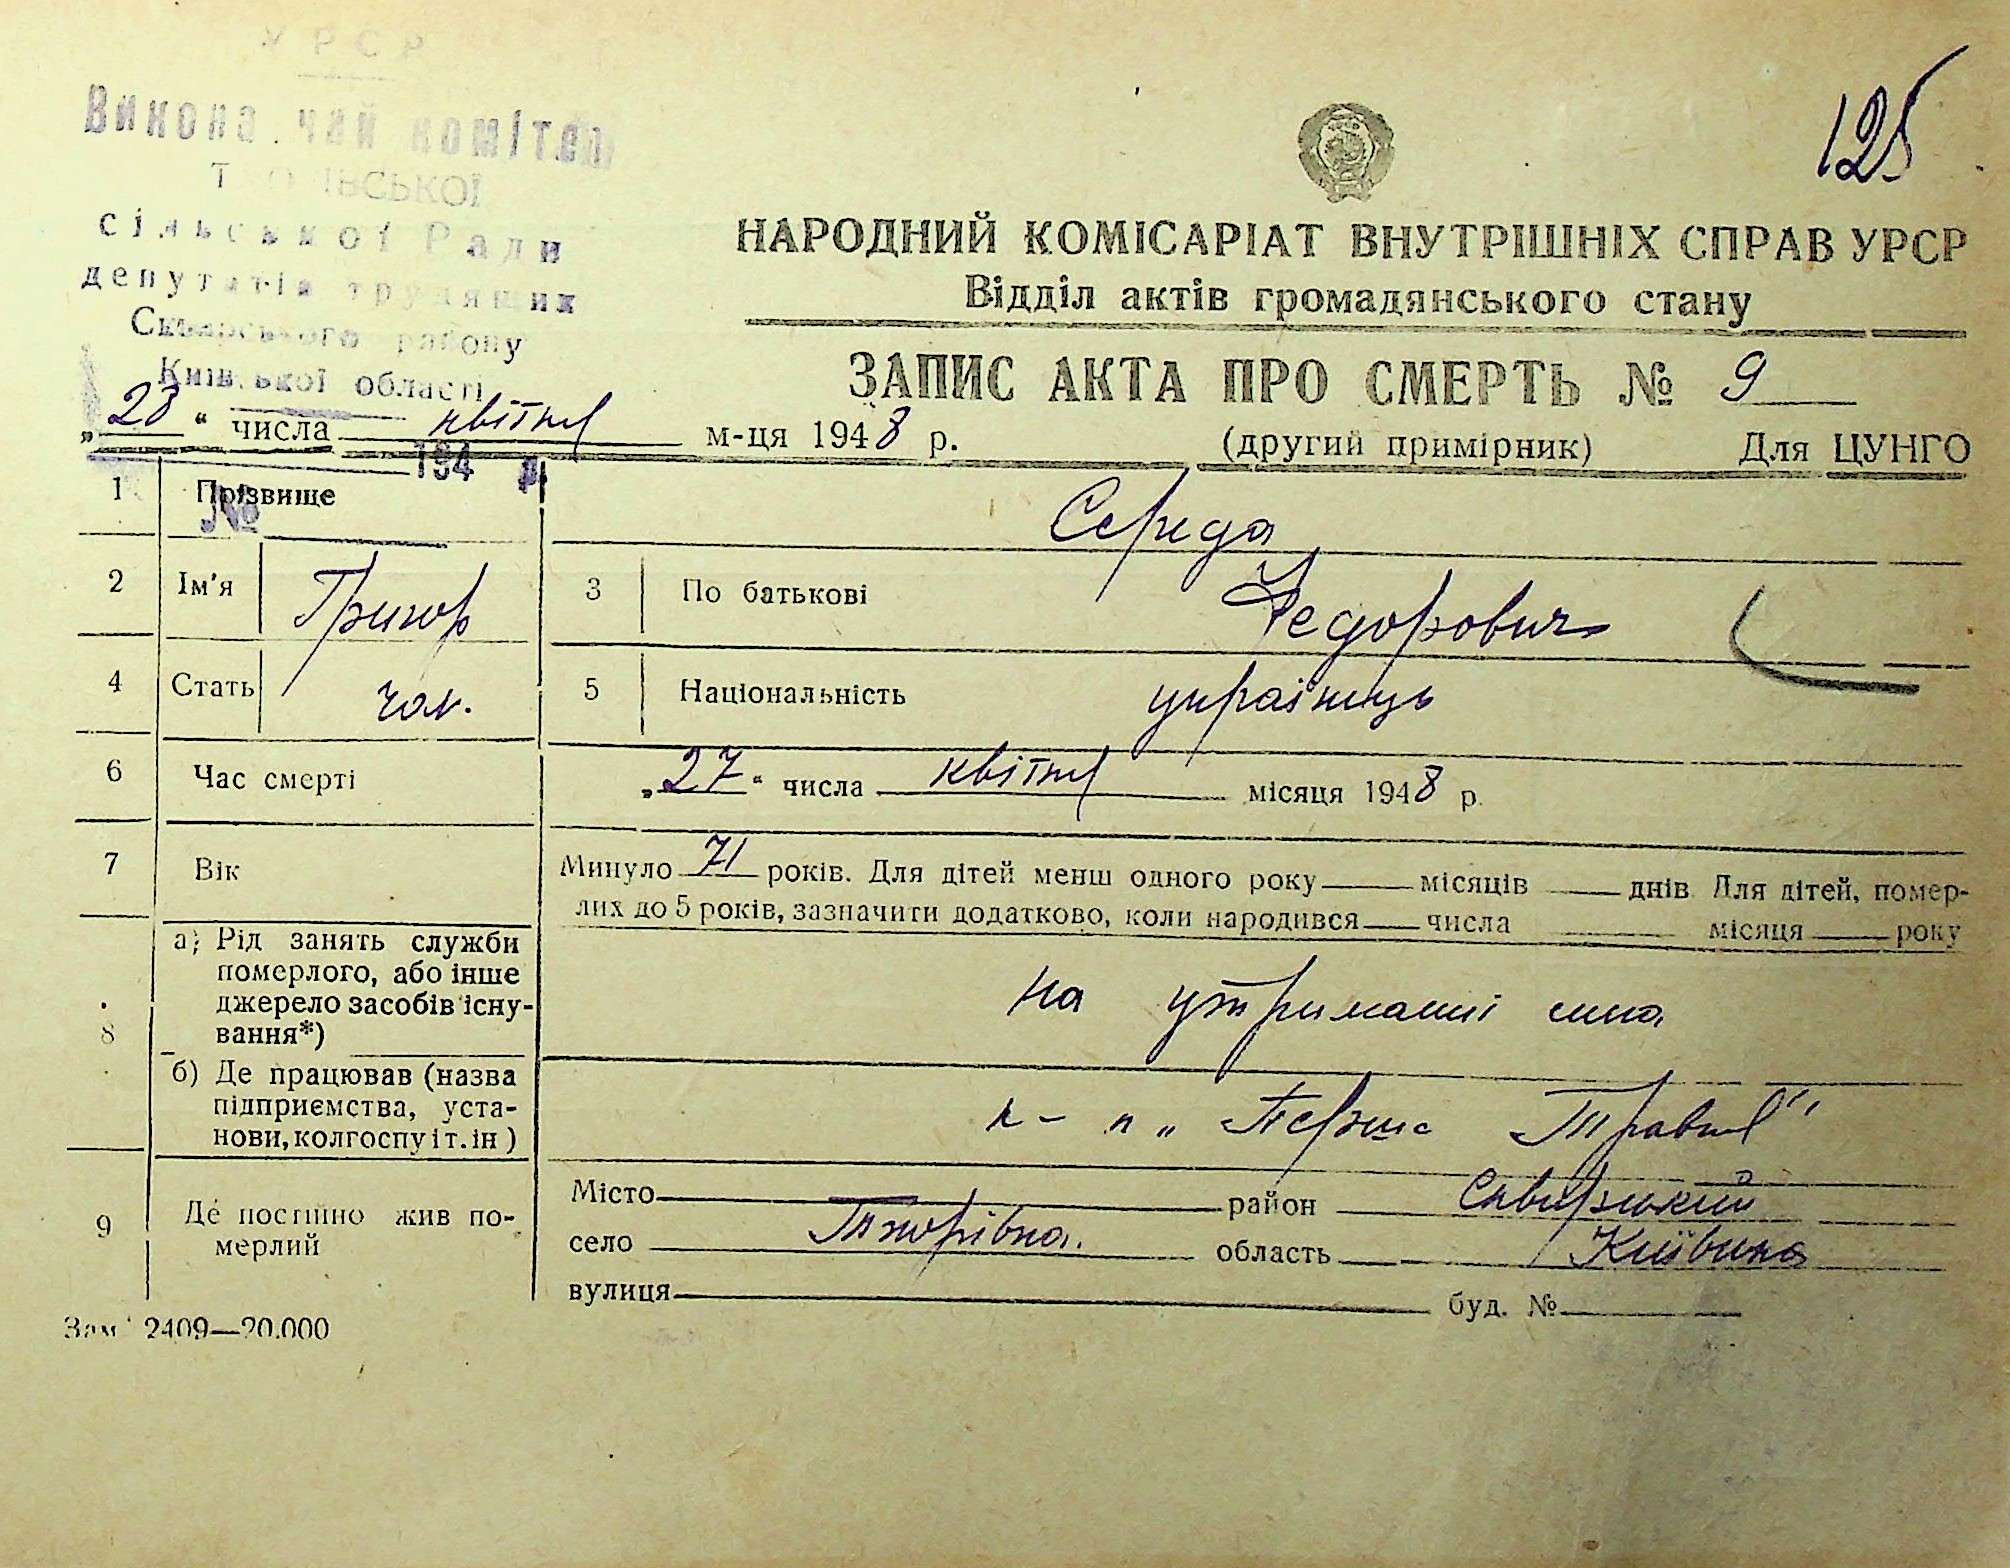 УРСР
Виконавчий комітет
Т
ІВСЬКОЇ
сільської Ради
депутатів трудящих
Сквирського району
Київської області
194 р.
№
125
НАРОДНИЙ КОМІСАРІАТ ВНУТРІШНІХ СПРАВ УРСР
Відділ актів громадянського стану
ЗАПИС АКТА ПРО СМЕРТЬ № 9
„28“ числа квітня м-ця 1948 р. (другий примірник) Для ЦУНГО
1 Прізвище Середа
2 Ім'я Григор 3 По батькові Федорович
4 Стать чол. 5 Національність українець
6 Час смерті „27“ числа квітня місяця 1948 р.
7 Вік Минуло 71 років. Для дітей менш одного року місяців днів Для дітей, помер-
лих до 5 років, зазначити додатково, коли народився числа місяця року
8
а) Рід занять служби
померлого, або інше
джерело засобів існу-
вання*)
на утриманні сина
б) Де працював (назва
підприємства, уста-
нови, колгоспу і т. ін)
к-п „Перше Травня"
9 Де постійно жив по-
мерлий
Місто район Сквирський
село Тхорівка. область Київська
вулиця буд. №
Зам 2409—20.000